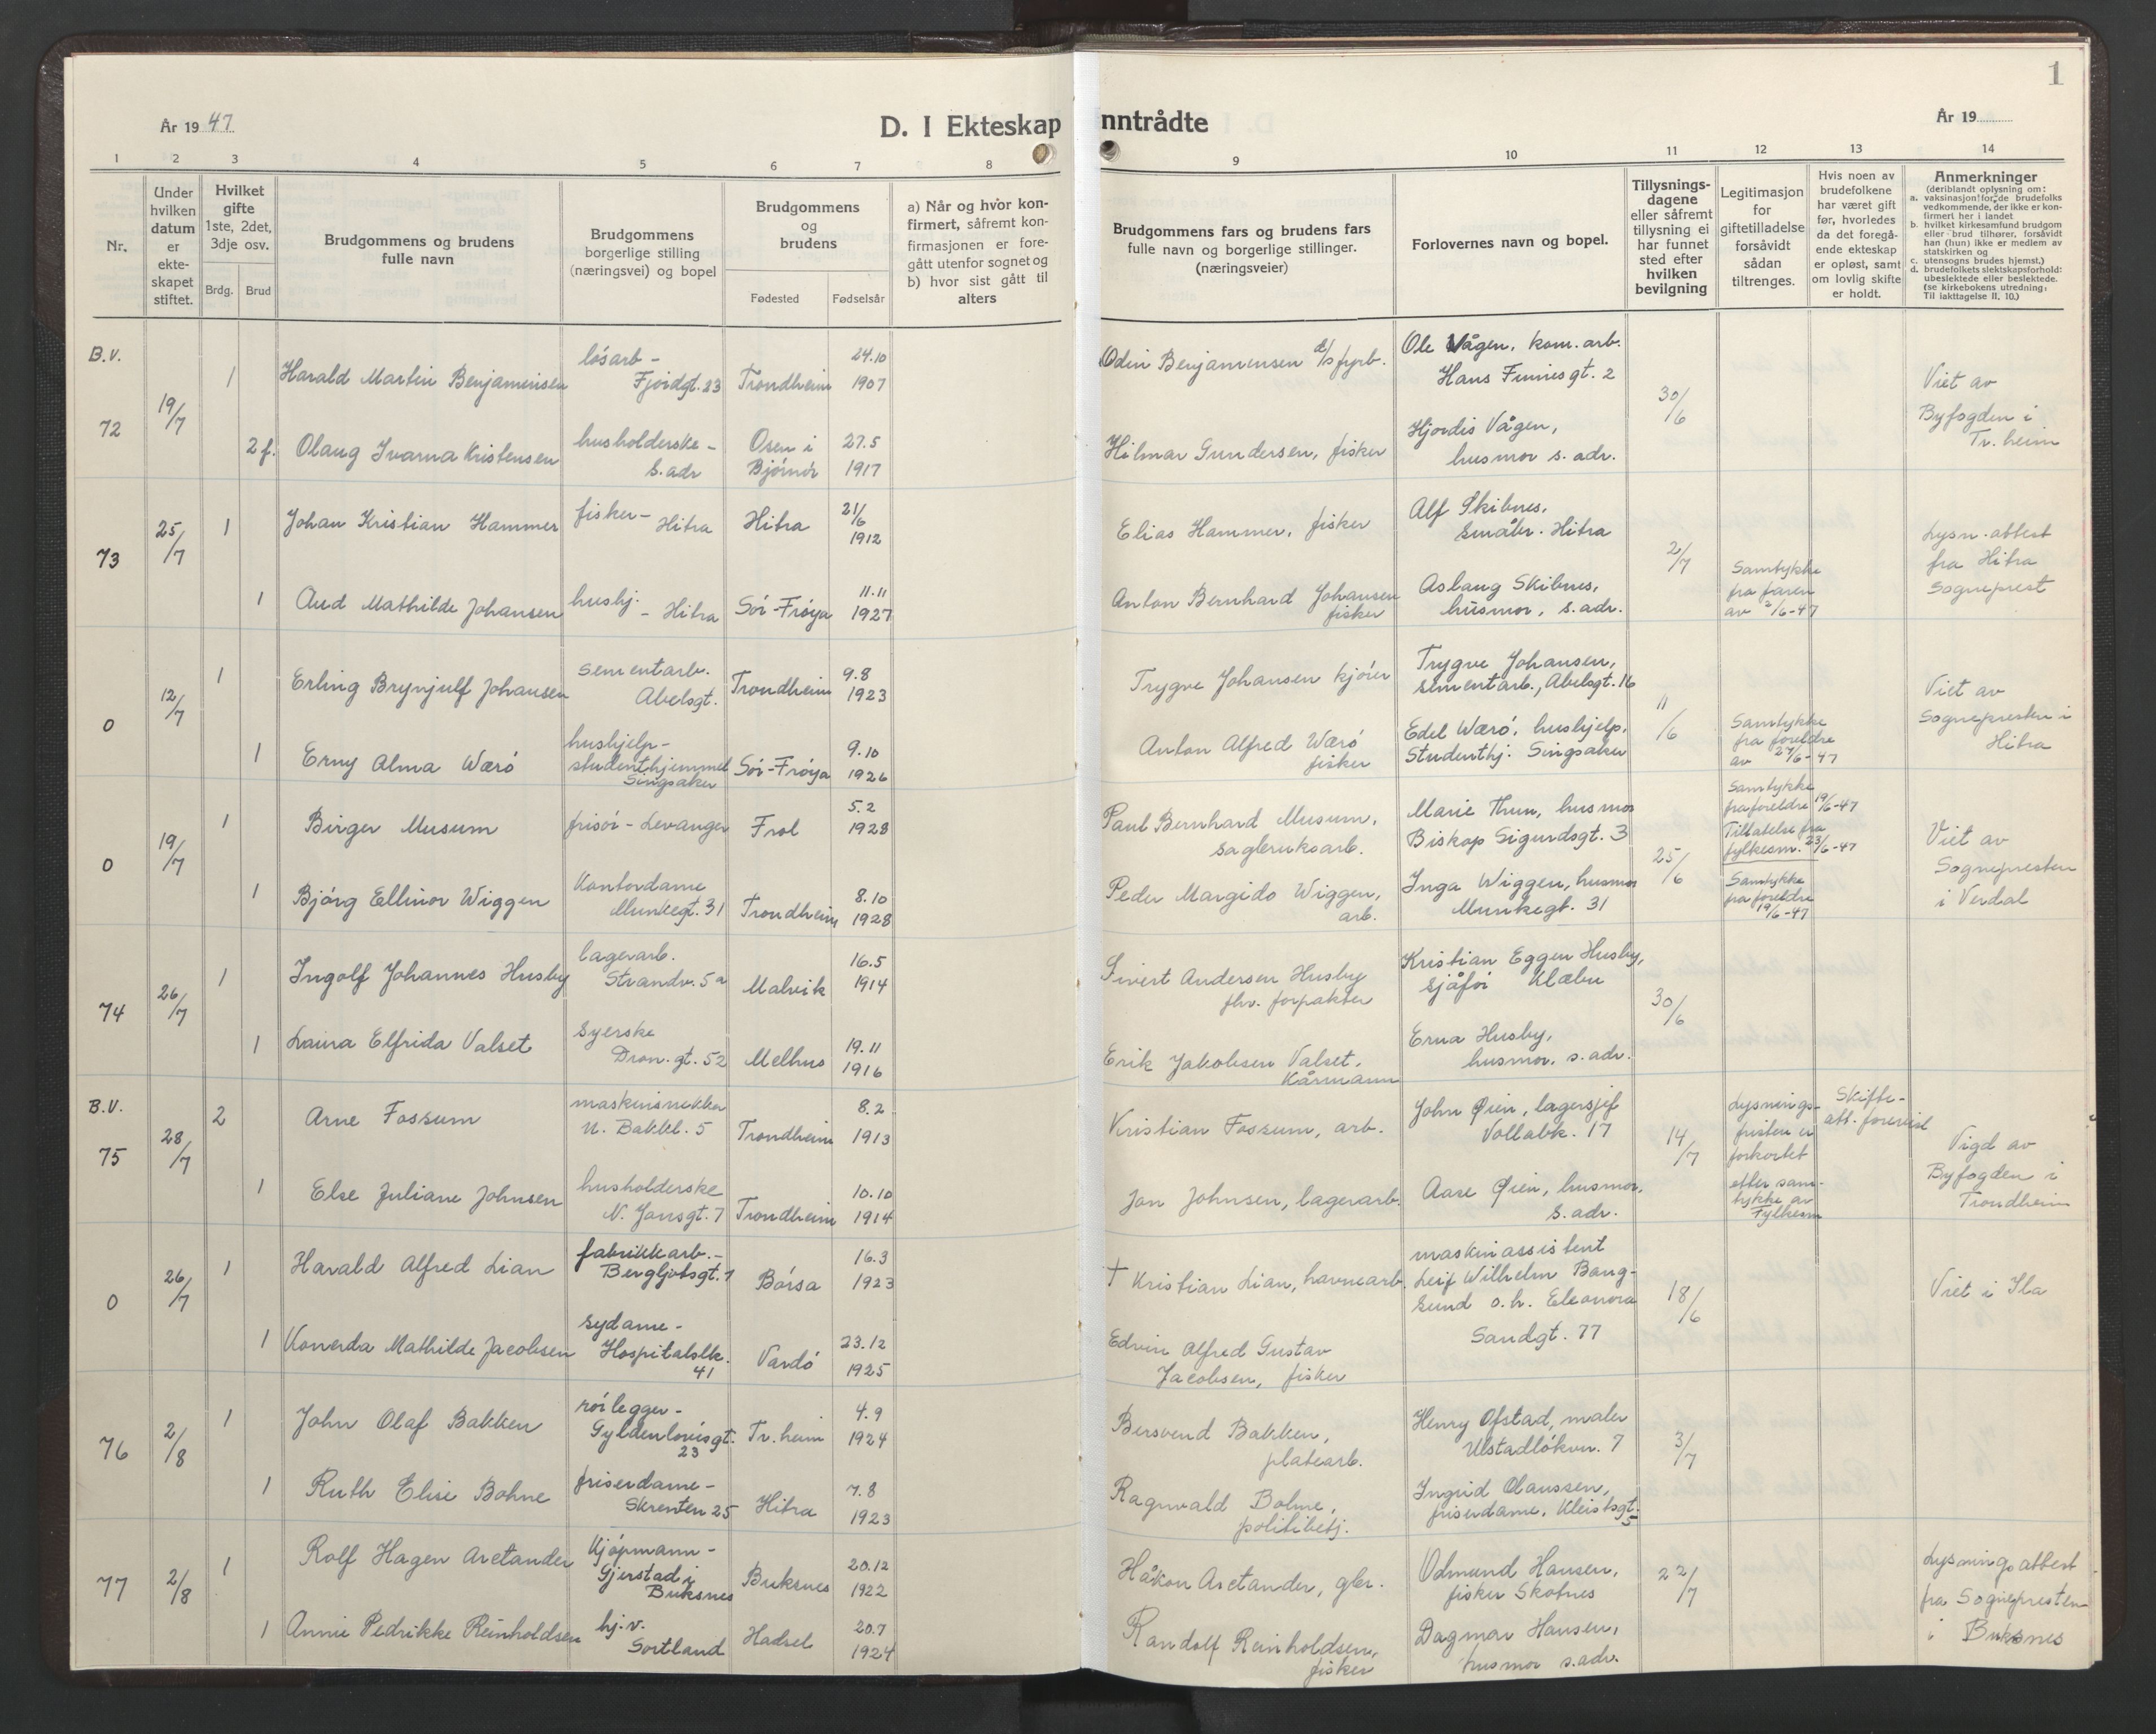 1
År 1947
D. I Ekteskap inntrådte
År 19
1 2 3 4 5 6 7 8 9 10 11 12 13 14
Nr.
Under hvilken datum er ekte-skapet stiftet.
Hvilket gifte 1ste, 2det, 3dje osv.
Brdg. Brud
Brudgommens og brudens fulle navn
Brudgommens borgerlige stilling (næringsvei) og bopel
Brudgommens og brudens
Fødested Fødselsår
a) Når og hvor kon-
firmert, såfremt kon-
firmasjonen er fore-
gått utenfor sognet og
b) hvor sist gått til
alters
Brudgommens fars og brudens fars
fulle navn og borgerlige stillinger.
(næringsveier)
Forlovernes navn og bopel.
Tillysnings-
dagene
eller såfremt
tillysning ei
har funnet
sted efter
hvilken
bevilgning
Legitimasjon
for
giftetilladelse
forsåvidt
sådan
tiltrenges.
Hvis noen av
brudefolkene
har været gift
før, hvorledes
da det foregå-
ende ekteskap
er opløst, samt
om lovlig skifte
er holdt.
Anmerkninger
(deriblandt oplysning om:
a. vaksinasjon for de brudefolks
vedkommende, der ikke er kon-
firmert her i landet
b. hvilket kirkesamfund brudgom
eller brud tilhører, forsåvidt
han (hun) ikke er medlem av
statskirken og
c. utensogns brudes hjemst.)
d. brudefolkets slektskapsforhold:
ubeslektede eller beslektede.
(se kirkebokens utredning:
Til iakttagelse II. 10.)
B.V.
72 19/7
1 Harald Martin Benjaminsen løsarb - Fjordgt. 23 Trondheim 24.10 1907
Odin Benjaminsen fyrb.
Ole Vågen, kom. arb. Hans Finnesgt. 2
30/6
Viet av Byfogden i Tr.heim
2 f. Olaug Ivarna Kristensen husholderske - s. adr Osen i Bjørnør 27.5 1917
Hilmar Gundersen, fisker
Hjordis Vågen, husmor s. adr.
73 25/7
1 Johan Kristian Hammer fisker - Hitra Hitra 21/6 1912
Elias Hammer, fisker
Alf Skibnes, småbr. Hitra
2/7
Lysn. attest fra Hitra Sogneprest
1 Aud Mathilde Johansen hushj. - Hitra Sør-Frøya 11.11 1927
Anton Bernhard Johansen fisker
Aslaug Skibnes, husmor, s. adr.
Samtykke fra faren av 2/6-47
0 12/7
1 Erling Brynjulf Johansen sementarb. Abelsgt. Trondheim 9.8 1923
Trygve Johansen kjører
Trygve Johansen, sementarb., Abelsgt. 16
11/6
Viet av Sognepresten i Hitra
1 Erny Alma Wærø hushjelp - studenthjemmet Singsaker Sør-Frøya 9.10 1926
Anton Alfred Wærø fisker
Edel Wærø, hushjelp, Studenthj. Singsaker
Samtykke fra foreldre av 27/6-47
0 19/7
1 Birger Musum frisør - Levanger Frol 5.2 1928
Paul Bernhard Musum, sagbruksarb.
Marie Thun, husmor Biskop Sigurdsgt. 3
25/6
Samtykke fra foreldre 19/6-47 Tillatelse fra fylkesm. 23/6-47
Viet av Sognepresten i Verdal
1 Bjørg Ellinor Wiggen Kontordame Munkegt. 31 Trondheim 8.10 1928
Peder Margido Wiggen, arb.
Inga Wiggen, husmor Munkegt. 31
Samtykke fra foreldre 19/6-47
74 26/7
1 Ingolf Johannes Husby lagerarb. Strandv. 5a Malvik 16.5 1914
Sivert Andersen Husby fhv. forpakter
Kristian Eggen Husby, sjåfør Klæbu
30/6
1 Laura Elfrida Valset syerske Dron. gt. 52 Melhus 19.11 1916
Erik Jakobsen Valset, Kårmann
Erna Husby, husmor, s. adr.
B.V.
75 28/7
2 Arne Fossum maskinsnekker N. Bakkl. 5 Trondheim 8.2 1913
Kristian Fossum, arb.
John Øien, lagersjef Vollabk. 17
14/7
Lysnings-fristen er forkortet efter sam-tykke av Fylkesm
Skifte-att. forevist
Vigd av Byfogden i Trondheim
1 Else Juliane Johnsen husholderske N. Jansgt. 7 Trondheim 10.10 1914
Jon Johnsen, lagerarb.
Aase Øien, husmor, s. adr.
0 26/7
1 Harald Alfred Lian fabrikkarb. - Bergljotsgt. 1 Børsa 16.3 1923
† Kristian Lian, havnearb.
maskinassistent Leif Wilhelm Bang-sund o.h. Eleonora Sandgt. 77
18/6
Viet i Ila
1 Konerda Mathilde Jacobsen sydame - Hospitalslk. 41 Vardø 23.12 1925
Edvin Alfred Gustav Jacobsen, fisker
76 2/8
1 John Olaf Bakken rørlegger - Gyldenløvesgt. 23 Tr.heim 4.9 1924
Bersvend Bakken, platearb.
Henry Ofstad, maler Ulstadløkvn. 7
3/7
1 Ruth Elise Bohne friserdame - Skrenten 25 Hitra 7.8 1923
Ragnvald Bohne, politibetj.
Ingrid Olaussen, friserdame, Kleistsgt. 5
77 2/8
1 Rolf Hagen Arctander Kjøpmann - Gjerstad i Buksnes Buksnes 20.12 1922
Håkon Arctander, gbr.
Odmund Hansen, fisker Skotnes
22/7
Lysningsattest fra Sognepresten i Buksnes
1 Annie Pedrikke Reinholdsen hj. v. Sortland Hadsel 20.7 1924
Randolf Reinholdsen, fisker
Dagmar Hansen, husmor s. adr.